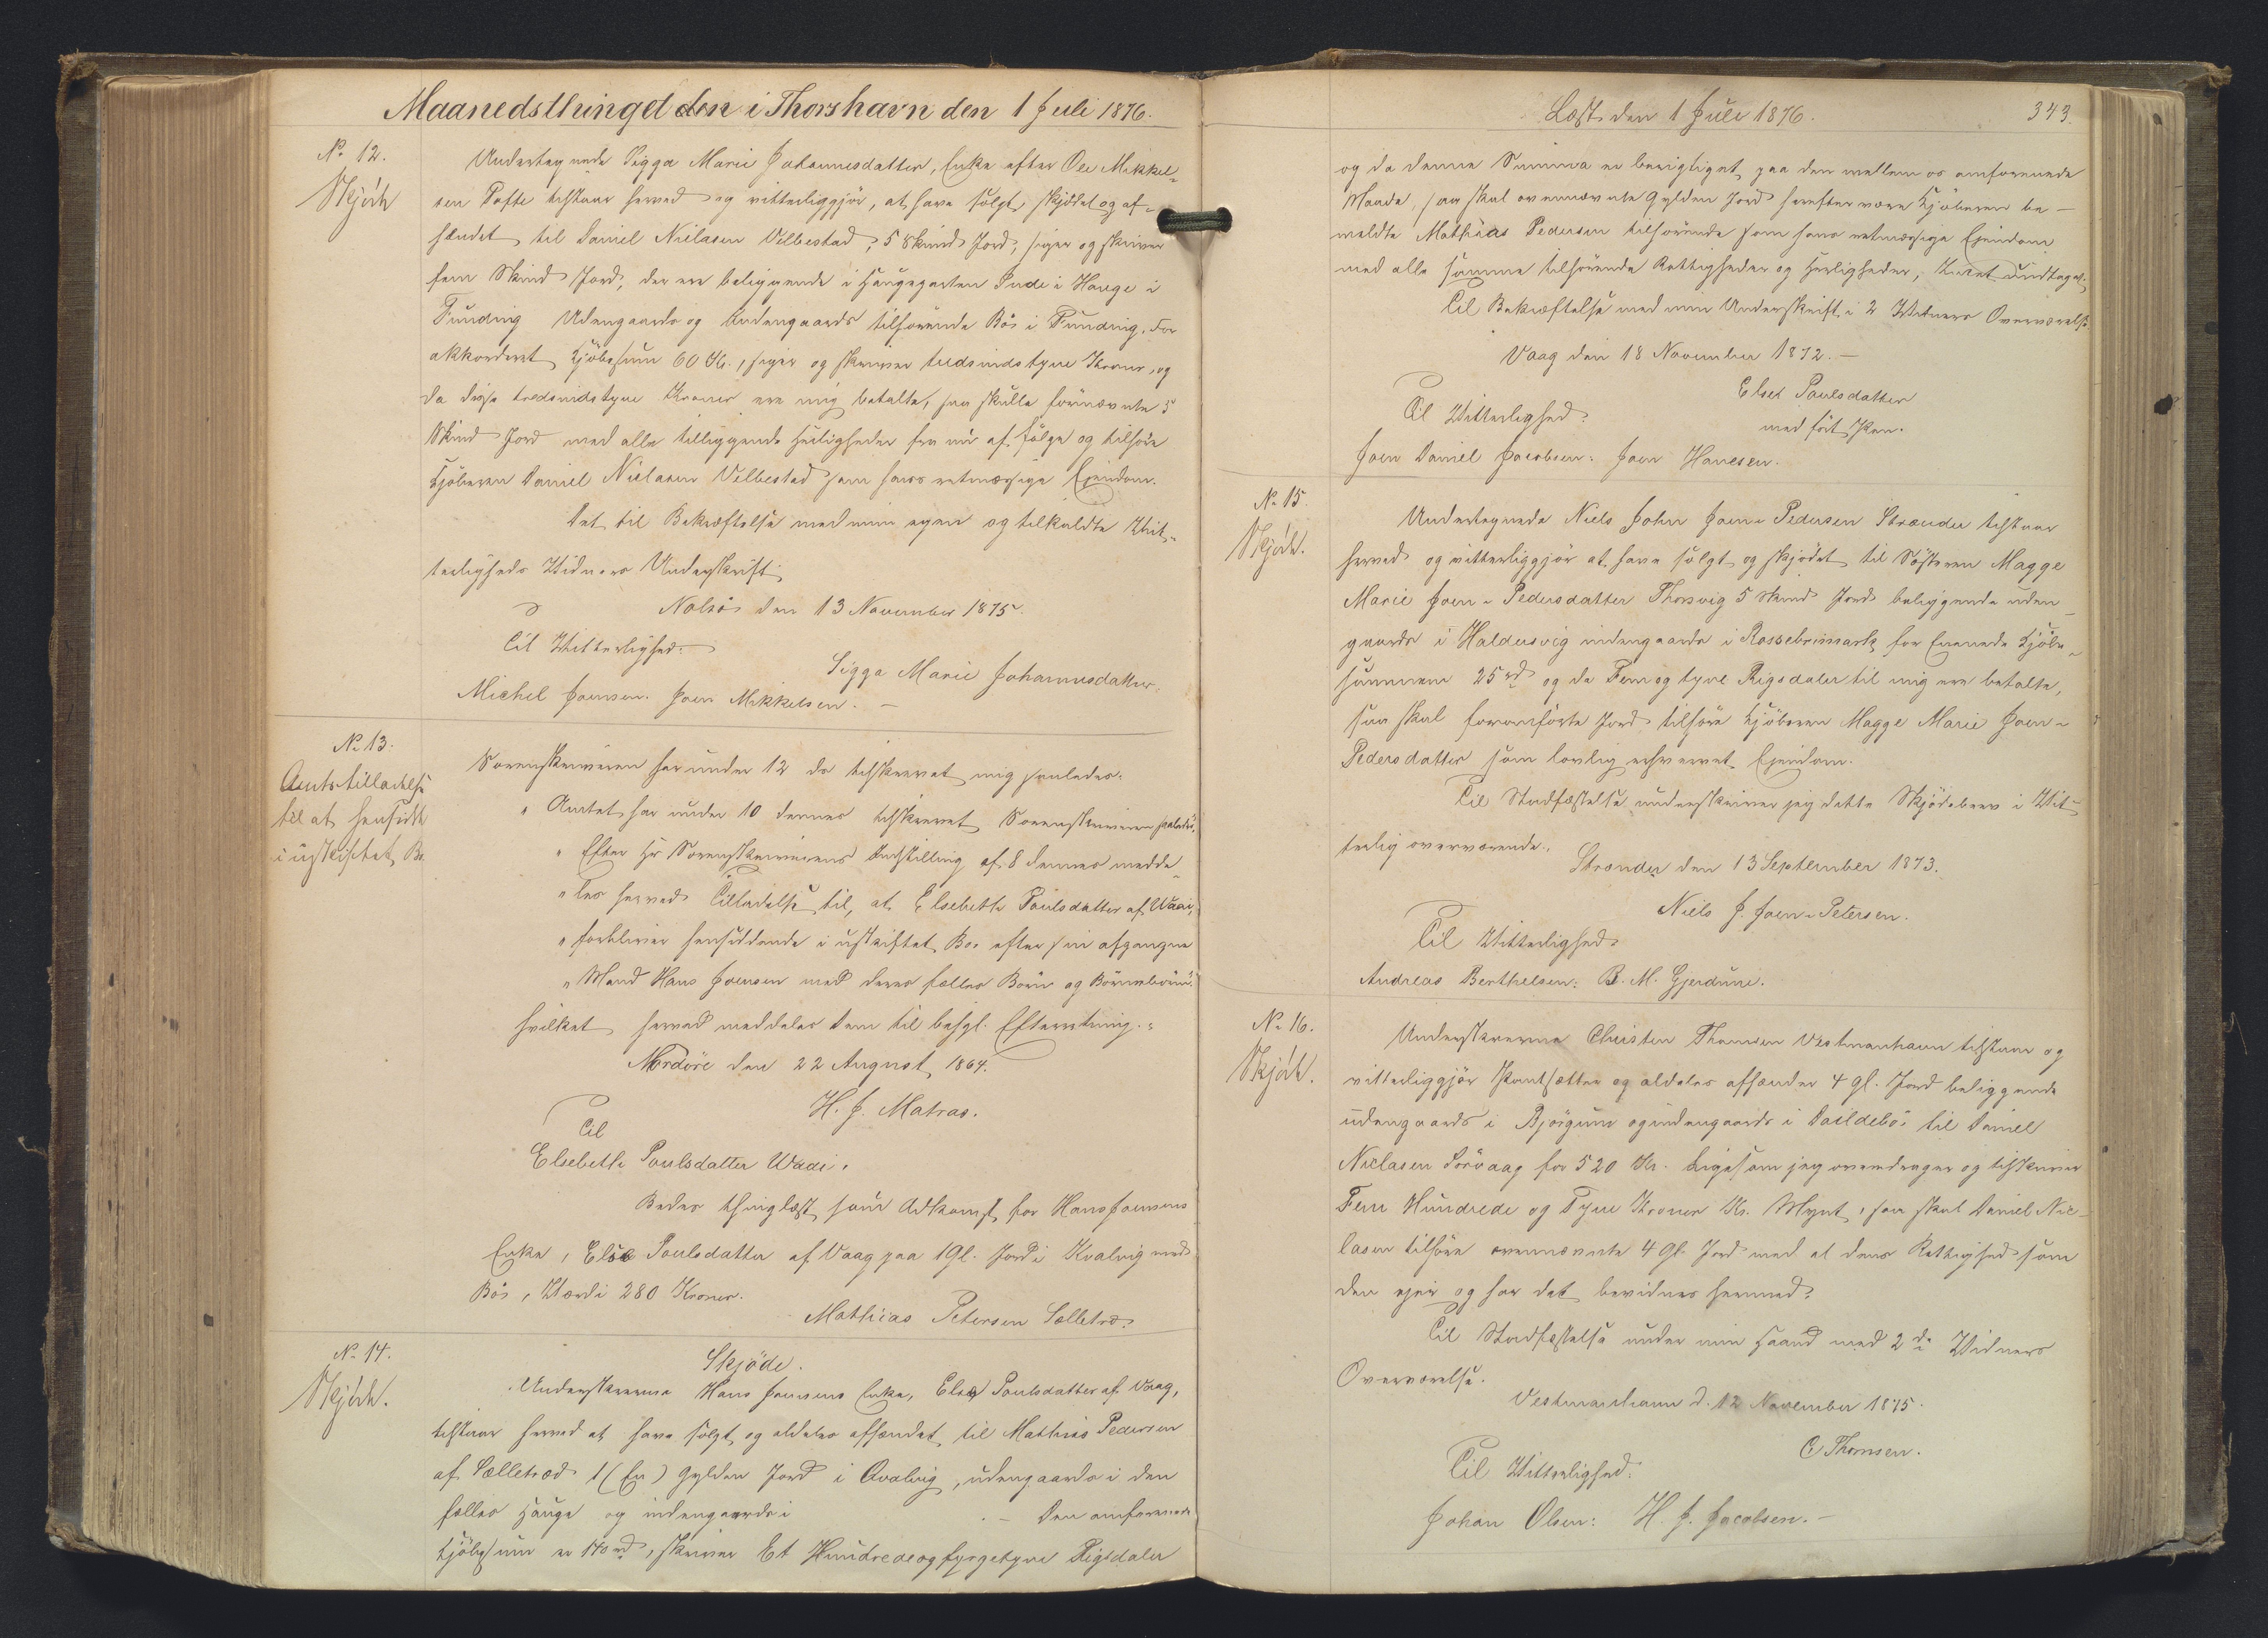 Maanedsthinget den i Thorshavn den 1 Juli 1876.
No 12.
Skjöde
Undertegnede Sigga Marie Johannesdatter, Enke efter Ole Mikkel-
sen Tofte tilstaar herved og vitterliggjör, at have solgt, skjödet og af-
hændet til Daniel Niclasen Velbestad, 5 Skind Jord, siger og skriver
fem Skind Jord, der ere beliggende i Haugegarten Inde i Hauge i
Funding Udengaards og Indengaards tilhörende Bös i Funding. For
akkorderet Kjöbesum 60 Kr., siger og skriver tredsindstyve Kroner, og
da disse tredsindstyve Kroner ere mig betalte, saa skulle fornævnte 5
Skind Jord med alle tilliggende Herligheder fra nu af fölge og tilhöre
Kjöberen Daniel Niclasen Velbestad som hans retmæssige Ejendom.
Det til Bekræftelse med min egen og tilkaldte Vit-
terligheds Vidners Underskrift
Nolsö den 13 November 1875.
Til Vitterlighed:
Sigga Marie Johannesdatter.
Michel Joensen. Joen Mikkelsen. —
No 13.
Amtstilladelse
til at hensidde
i uskiftet Bo.
Sorenskriveren har under 12 ds tilskrevet mig saaledes:
" Amtet har under 10 dennes tilskrevet Sorenskriveren saaledes,
" Efter Hr Sorenskriverens Indstilling af 8 dennes medde-
" les herved Tilladelse til, at Elsebeth Poulsdatter af Waai,
" forbliver hensiddende i uskiftet Bo efter sin afgangne
" Mand Hans Joensen med deres fælles Börn og Börnebörn."
hvilket herved meddeles Dem til behgl. Efterretning."
Nordöre den 22 August 1864.
H. J. Matras.
Til
Elsebeth Poulsdatter Waai.
Bedes thinglæst som Adkomst for Hans Joensens
Enke, Else Poulsdatter af Vaag paa 1 Gl. Jord i Kvalvig med
Bös, Værdi 280 Kroner.
Mathias Petersen Selletræ.
No 14.
Skjöde.
Skjöde.
Underskrevne Hans Joensens Enke, Else Poulsdatter af Vaag,
tilstaar herved at have solgt og aldeles afhændet til Mathias Pedersen
af Selletræd 1 (En) Gylden Jord i Qvalvig, udengaards i den
fælles Hauge og indengaards i — Den omforenede
Kjöbesum er 140 rd, skriver Et Hundrede og fyrgetyve Rigsdaler
Læst den 1 Juli 1876.
343.
og da denne Summa er berigtiget paa den mellem os omforenede
Maade, saa skal ovennævnte Gylden Jord herefter være Kjöberen be-
meldte Mathias Pedersen tilhörende som hans retmæssige Ejendom
med alle samme tilhörende Rettigheder og Herligheder, Intet undtaget.
Til Bekræftelse med min Underskrift i 2 Vidners Overværelse.
Vaag den 18 November 1872. —
Elset Poulsdatter
med fört Pen.
Til Vitterlighed:
Joen Daniel Jacobsen: Joen Hansen.
No 15.
Skjöde.
Undertegnede Niels John Joen-Pedersen Strænder tilstaar
herved og vitterliggjör at have solgt og skjödet til Sösteren Magge
Marie Joen-Pedersdatter Thorsvig 5 Skind Jord beliggende uden-
gaards i Haldersvig indengaards i Rossebrimark for Ennende Kjöbe-
summen 25 rd og da Fem og tyve Rigsdaler til mig ere betalte,
saa skal foromförte Jord tilhöre Kjöberen Magge Marie Joen-
Pedersdatter som lovlig erhvervet Ejendom.
Til Stadfæstelse underskriver jeg dette Skjödebrev i Vit-
terlig overværende.
Strænder den 13 September 1873.
Niels J. Joen-Petersen.
Til Vitterlighed:
Andreas Berthelsen: B. M. Gjerdum.
No 16.
Skjöde.
Underskrevne Christen Thomsen Vestmanhavn tilstaar og
vitterliggjör Pantsætter og aldeles afhænder 4 gl. Jord beliggende
udengaards i Björgum og indengaards i Daildebö, til Daniel
Niclasen Sörvaag for 520 Kr. Ligesom jeg overdrager og tilskriver
Fem Hundrede og Tyve Kroner Kr. Mynt, saa skal Daniel Nic-
lasen tilhöre ovennævnte 4 Gl. Jord med al dens Rettighed som
den ejer og har det bevidnes hermed:
Til Stadfæstelse under min Haand med 2de Vidners
Overværelse.
Vestmanhavn d. 12 November 1875.
C Thomsen.
Til Vitterlighed:
Johan Olsen: H. J. Jacobsen. —